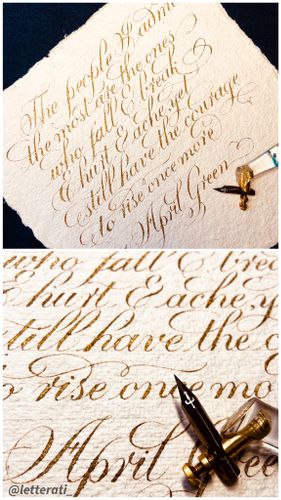 The people I admi
the most are the ones
who fall & break
& hurt & ache, yet
still have the courage
to rise once more
April Green
who fall & brea
& hurt & ache, y
still have the c
o rise once mo
April Gree
@letterati_